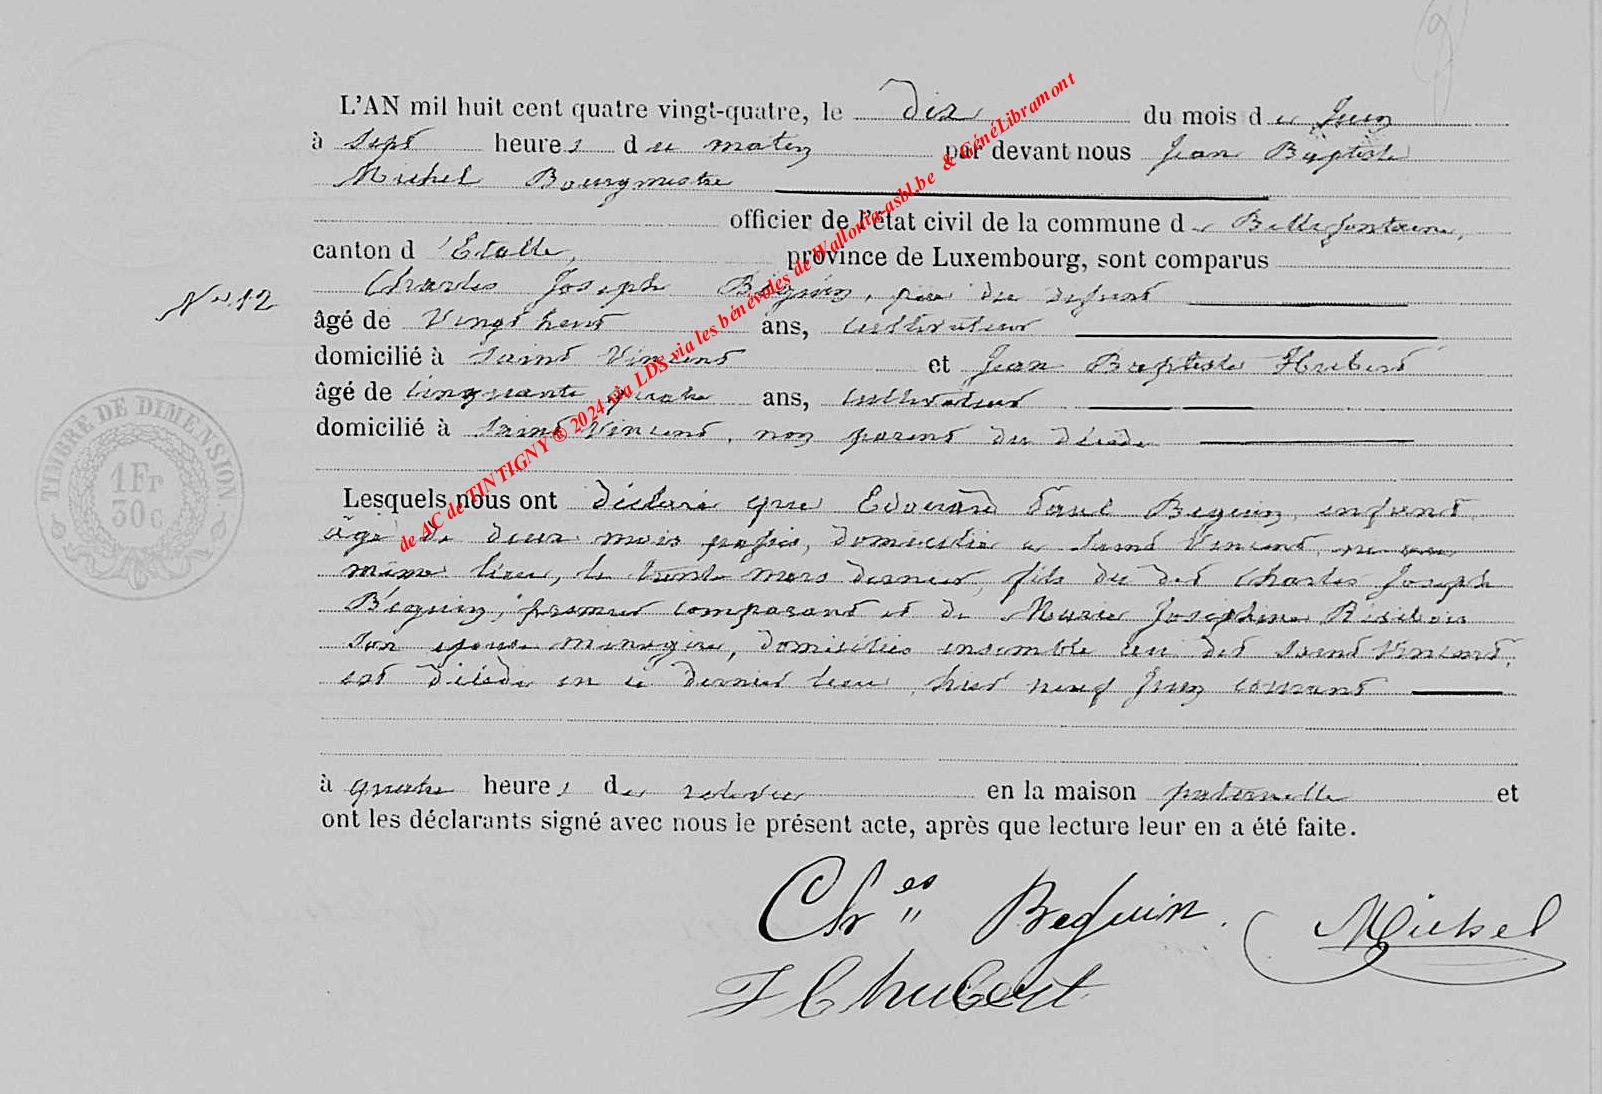 L'AN mil huit cent quatre vingt-quatre, le dix du mois de Juin
à sept heures du matin par devant nous Jean Baptiste
Michel Bourgmestre
officier de l'état civil de la commune de Bellefontaine,
canton d'Etalle, province de Luxembourg, sont comparus
Charles Joseph Béguin, père du défunt
N° 12
âgé de Vingt huit ans, cultivateur
domicilié à Saint Vincent et Jean Baptiste Hubert
âgé de Cinquante quatre ans, cultivateur
domicilié à Saint Vincent, non parent du décédé
TIMBRE DE DIMENSION.
1 Fr
30 c
Lesquels nous ont déclaré que Edouard Paul Beguin, enfant
âgé de deux mois passés, domicilié à Saint Vincent, né au
même lieu, le trente mars dernier, fils du dit Charles Joseph
Béguin, premier comparant et de Marie Joséphine
son épouse ménagère, domiciliés ensemble au dit Saint Vincent,
est décédé en ce dernier lieu, hier neuf Juin courant
à quatre heures de relevée en la maison paternelle et
ont les déclarants signé avec nous le présent acte, après que lecture leur en a été faite.
Ch es " Beguin. Michel
Hubert
de AC de TINTIGNY ® 2024 via LDS via les bénévoles de Wallonia-asbl.be & GénéLibramont